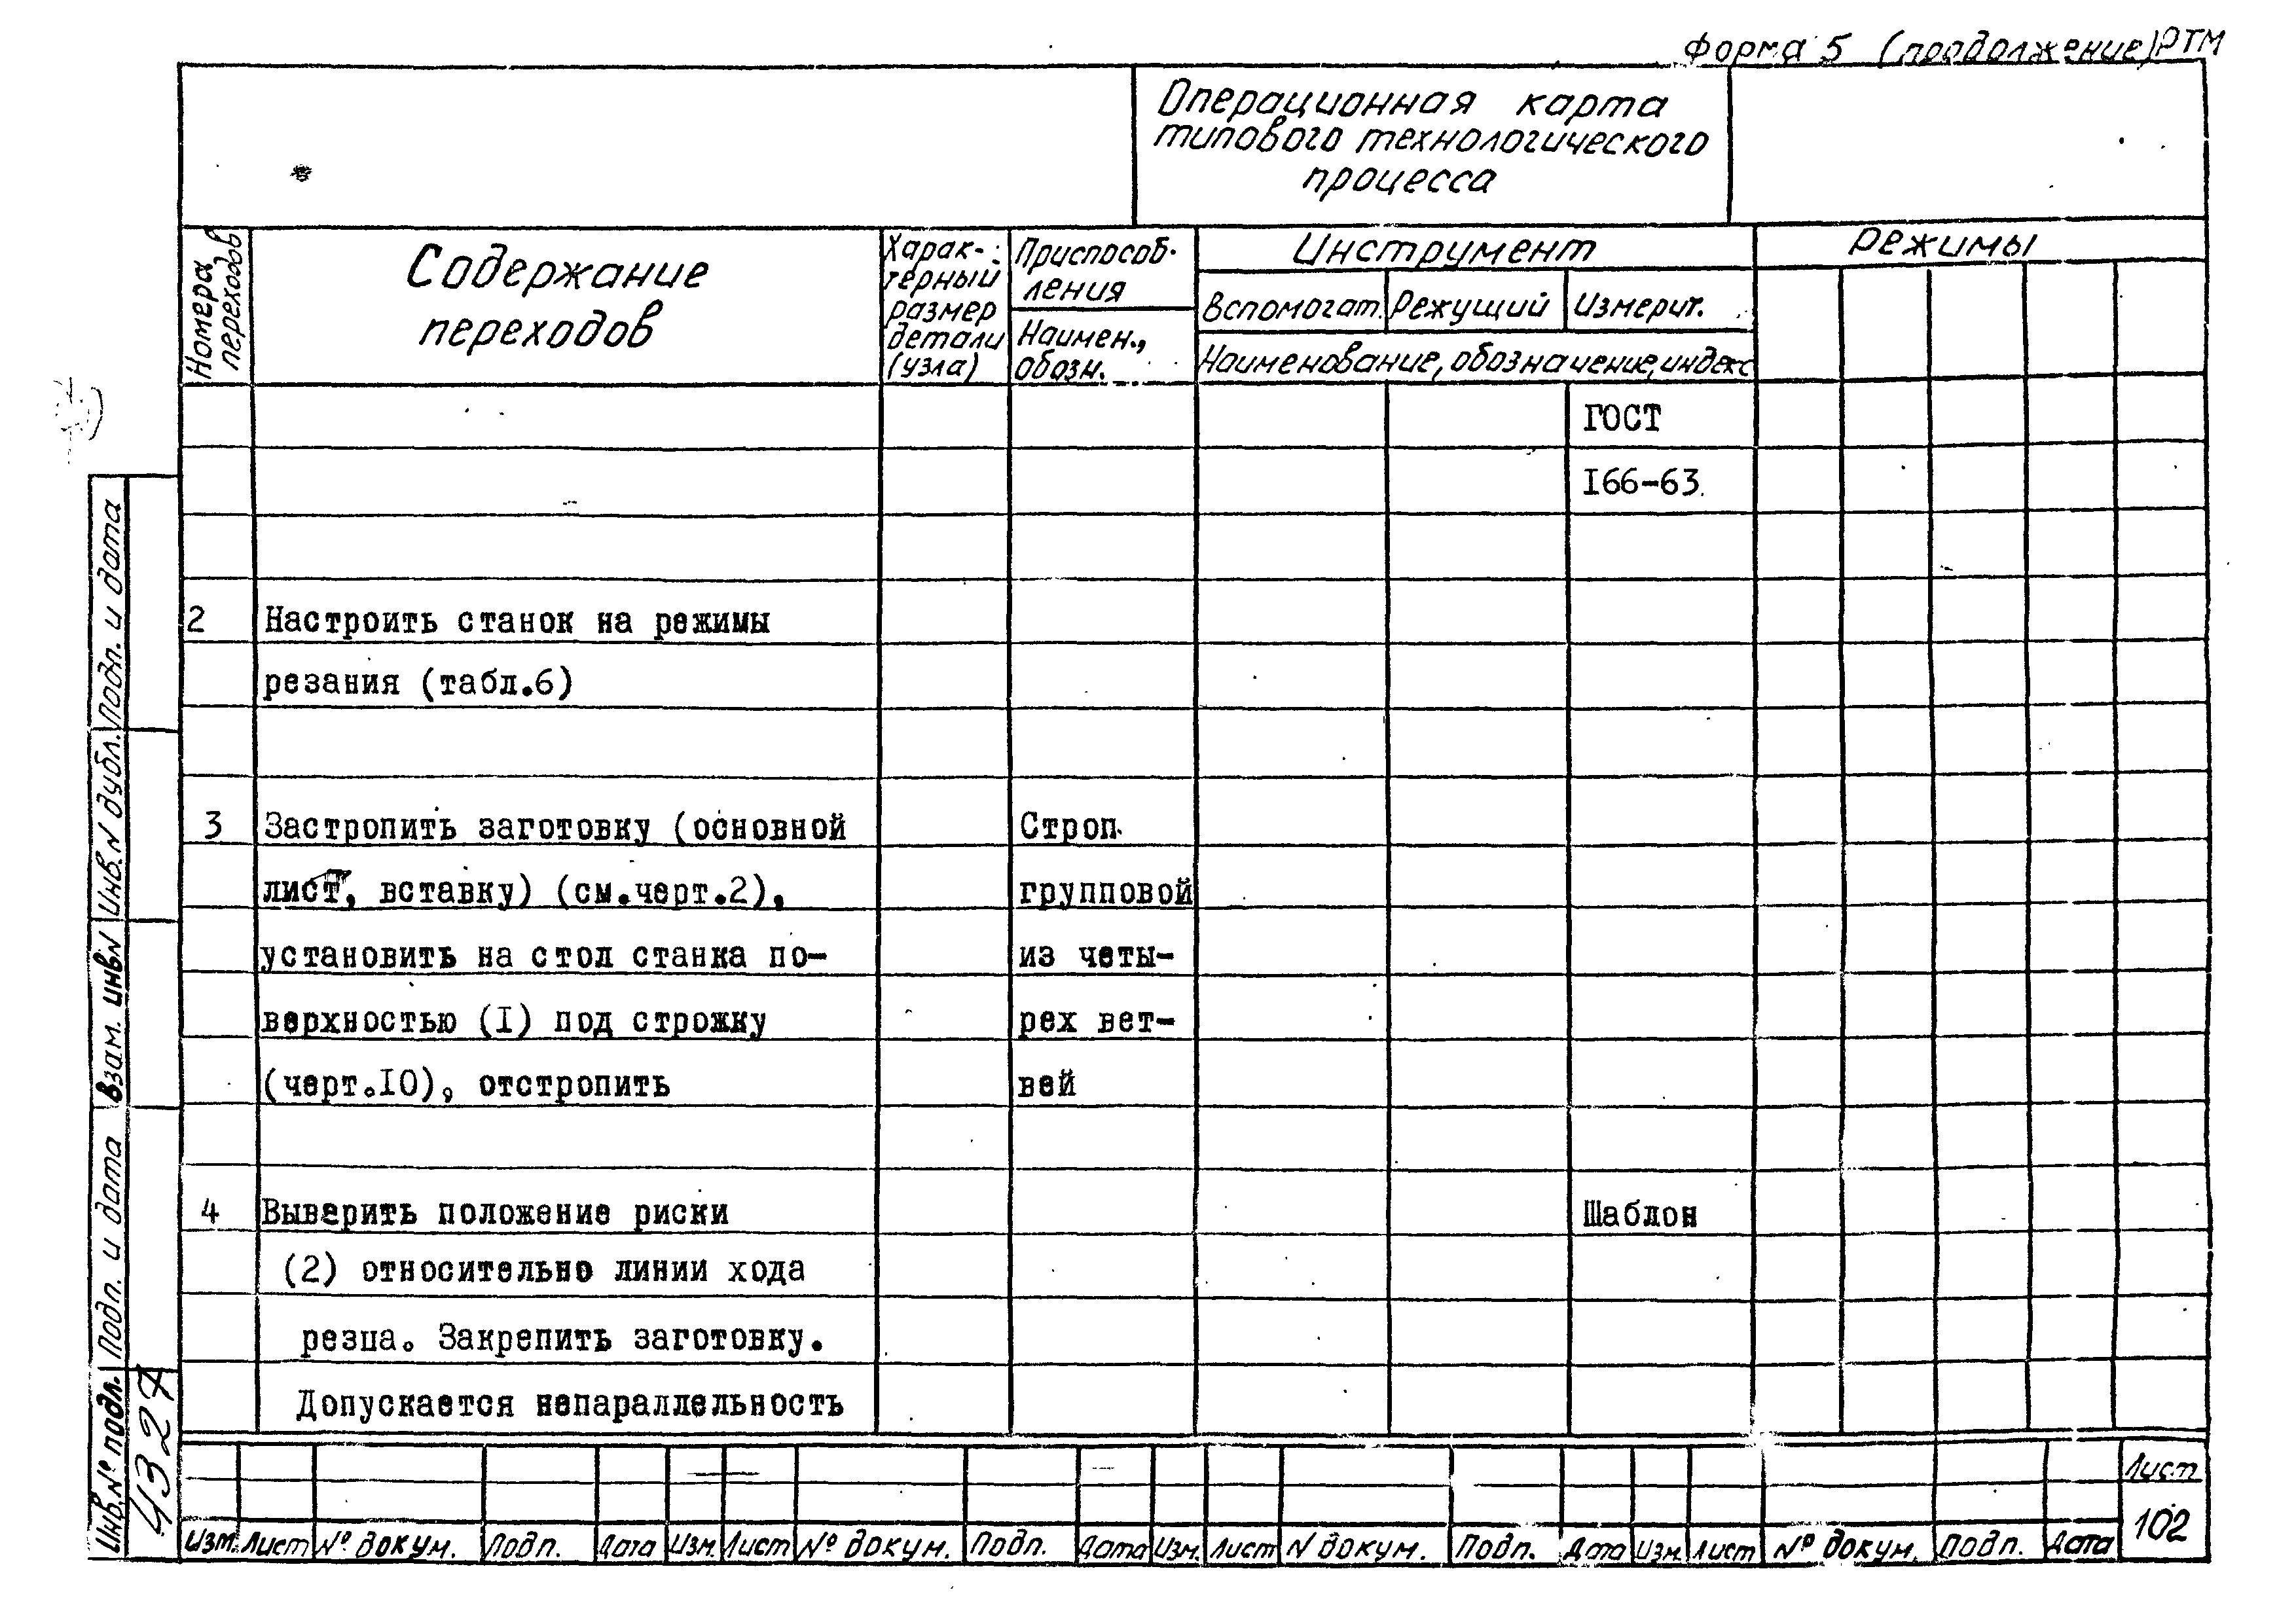 Форма 5 (продолжение) РТМ
Операционная карта
типового технологического
процесса
Номера
переходов
Содержание
переходов
Харак-
терный
размер
детали
(узла)
Приспособ-
ления
Наимен.,
обозн.
Инструмент
Вспомогат. Режущий Измерит.
Наименование, обозначение, индекс
Режимы
ГОСТ
I66-63
2 Настроить станок на режимы
резания (табл.6)
3 Застропить заготовку (основной Строп
лист, вставку) (см.черт.2), групповой
установить на стол станка по- из четы-
верхностью (I) под строжку рех вет-
(черт.I0), отстропить вей
4 Выверить положение риски Шаблон
(2) относительно линии хода
резца. Закрепить заготовку.
Допускается непараллельность
Подп. и дата
Инв.N дубл.
Взам. инв.N
Подп. и дата
Инв.№ подл.
4327
Лист
102
Изм. Лист № докум. Подп. Дата Изм. Лист № докум. Подп. Дата Изм. Лист N докум. Подп. Дата Изм. Лист № докум. Подп. Дата